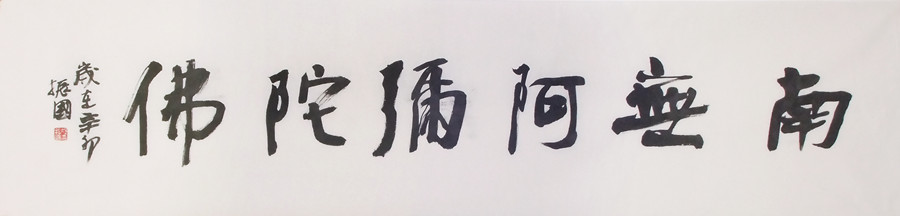 南無阿彌陀佛
歲在辛卯
振國